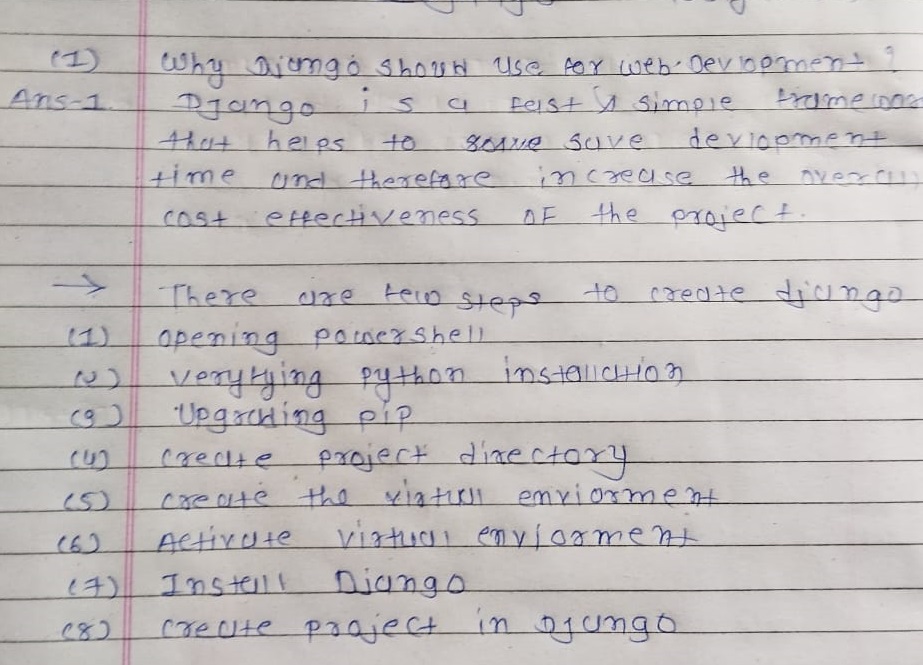 (1) Why Django should use for web Devlopment ?
Ans-1. Django is a fast & simple
that helps to save devlopment
time and therefore increase the overall
cost effectiveness OF the project.
→ There are few steps to create django
(1) opening powershell
(2) veryfying python installation
(3) Upgrading pip
(4) create project directory
(5) create the virtual enviorment
(6) Activate virtual enviorment
(7) Install Django
(8) create project in Django